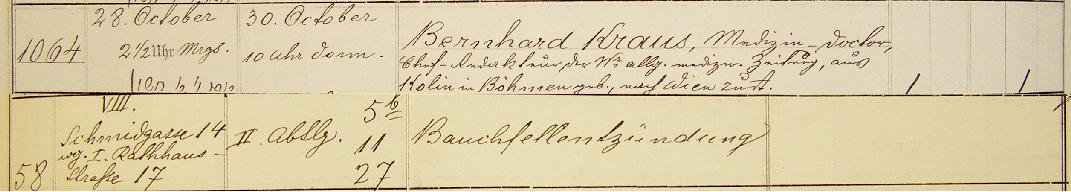 28. October 30. October
1064 2 1/2 Uhr Mrgs. 10 Uhr Vorm. Bernhard Kraus, Medizin-Doctor,
Chef-Redakteur der Wr. allg. medizn. Zeitung, aus
Kolin in Böhmen geb., nach Wien zust. 1 1
VIII. 5 b
Schmidgasse 14 II Abtlg. 11 Bauchfellentzündung
wg. I. Rathhaus-
58 Straße 17 27